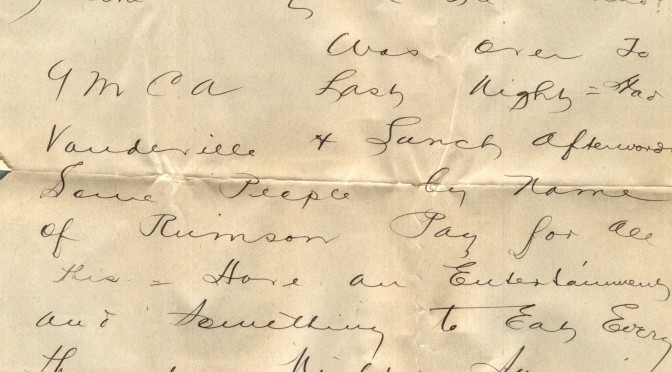 Was over to
Y M C A Last Night = Had
Vaudeville & Lunch afterward
Some People by Name
of Rumson Pay for all
this = Have an Entertainment
and Something to Eat Every